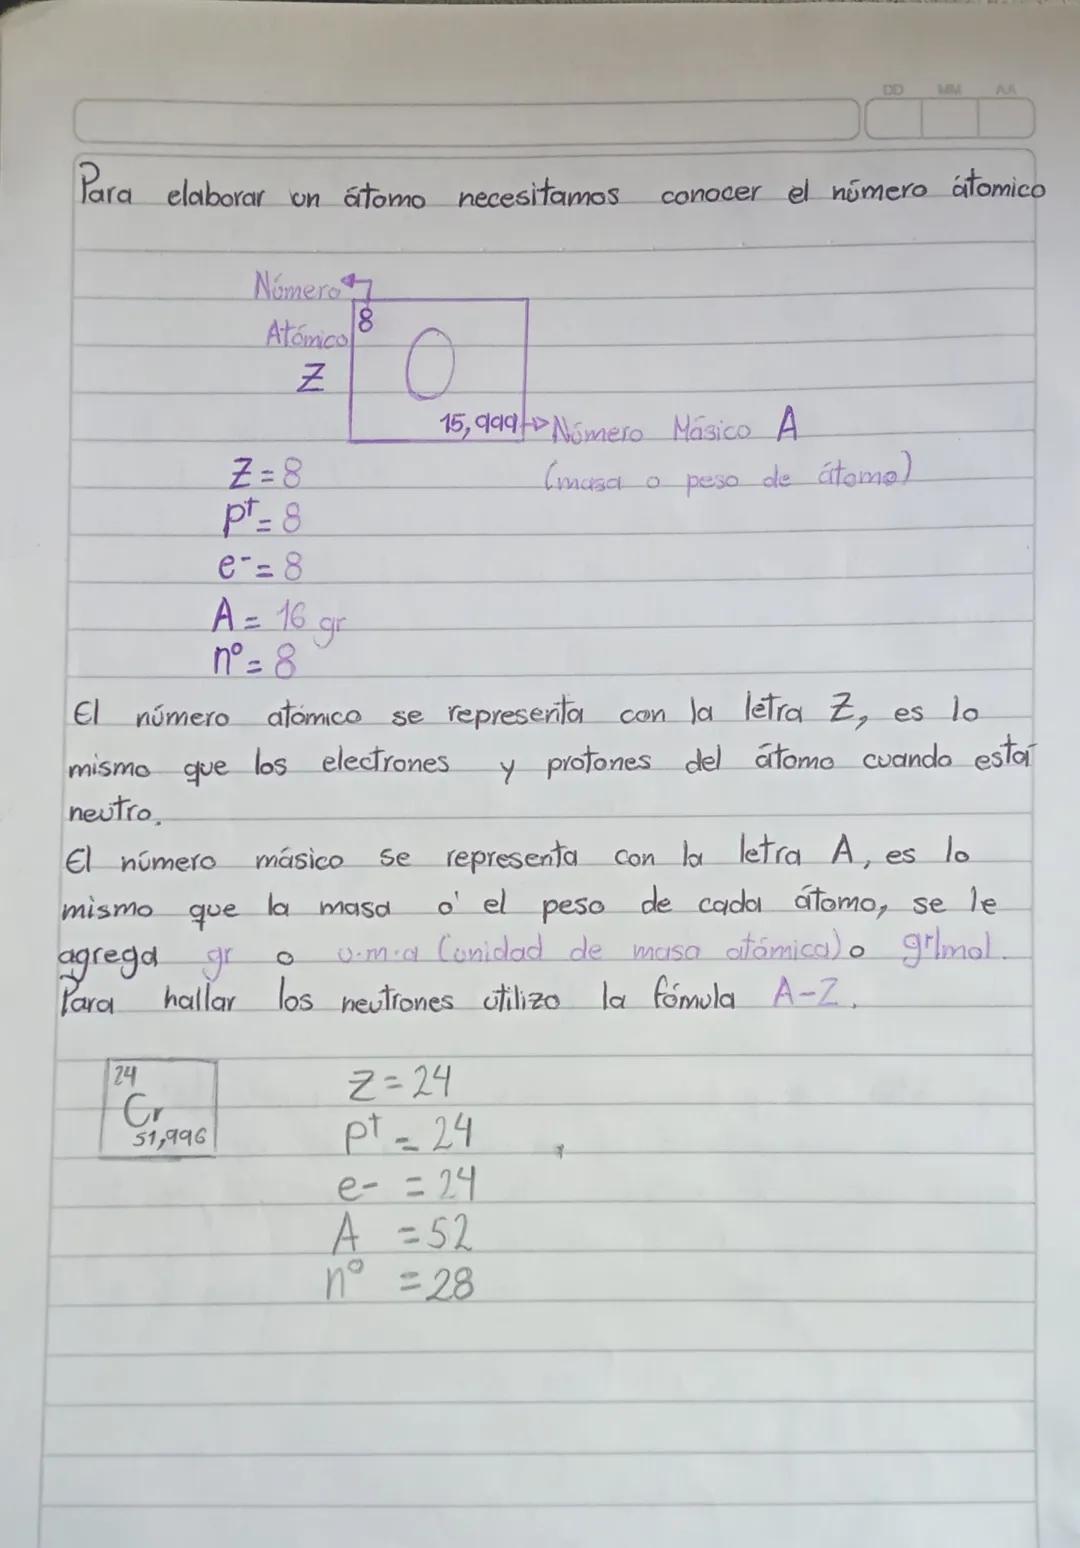 DD MM AA
Para elaborar un átomo necesitamos conocer el número átomico
Número
Atómico
Z
8
O
15,999
Número Másico A
(masa o peso de átomo)
Z = 8
p+ = 8
e- = 8
A = 16 gr
n° = 8
El número atómico se representa con la letra Z, es lo
mismo que los electrones y protones del átomo cuando está
neutro.
El número másico se representa con la letra A, es lo
mismo que la masa o' el peso de cada átomo, se le
agrega gr o u.m.a (unidad de masa atómica) o gr/mol.
Para hallar los neutrones utilizo la fómula A-Z.
24
Cr
51,996
Z = 24
p+ = 24
e- = 24
A = 52
n° = 28